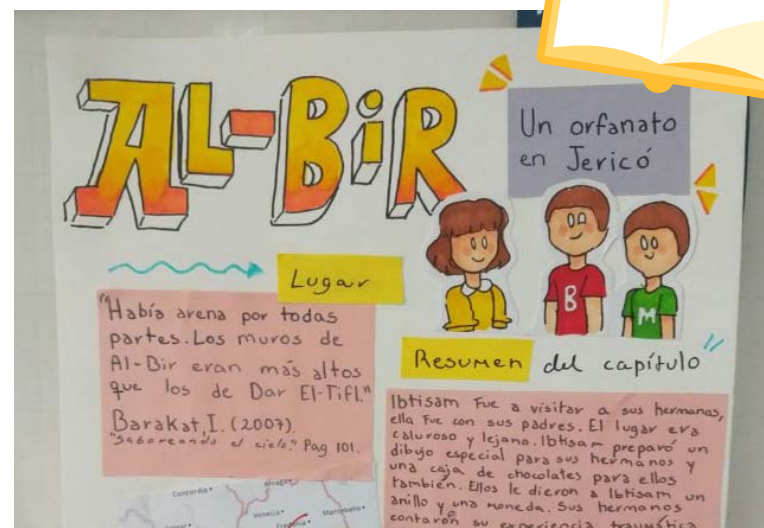 AL-BiR
Un orfanato
en Jericó
B
M
Lugar
"Había arena por todas
partes. Los muros de
Al-Bir eran más altos
que los de Dar El-Tifl."
Barakat, I. (2007).
"Saboreando el cielo." Pag 101.
Resumen del capítulo
Ibtisam fue a visitar a sus hermanos,
ella fue con sus padres. El lugar era
caluroso y lejano. Ibtisam preparó un
dibujo especial para sus hermanos y
una caja de chocolates para ellos
también. Ellos le dieron a Ibtisam un
anillo y una moneda. Sus hermanos
contaron su experiencia
Concordia
Venecia
Montebello